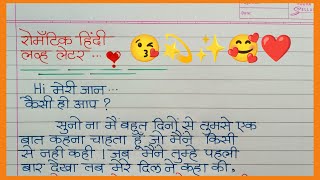 रोमँटिक हिंदी
लव्ह लेटर ...❣😘💫✨🥰❤
Hi मेरी जान...
कैसी हो आप ?
सुनो ना मै बहुत दिनों से तुमसे एक
बात कहना चाहता हूँ, जो मैने किसी
से नही कही । जब मैने तुम्हे पहली
बार देखा तब मेरे दिल ने कहा की.